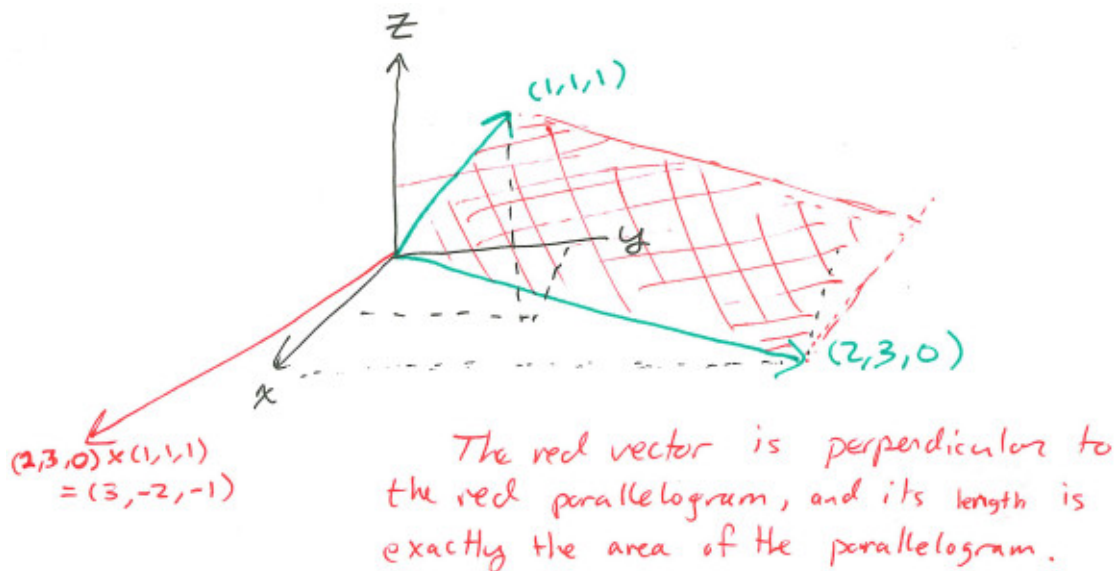 z
(1,1,1)
y
(2,3,0)
x
(2,3,0)×(1,1,1)
= (3,-2,-1)
The red vector is perpendicular to
the red parallelogram, and its length is
exactly the area of the parallelogram.